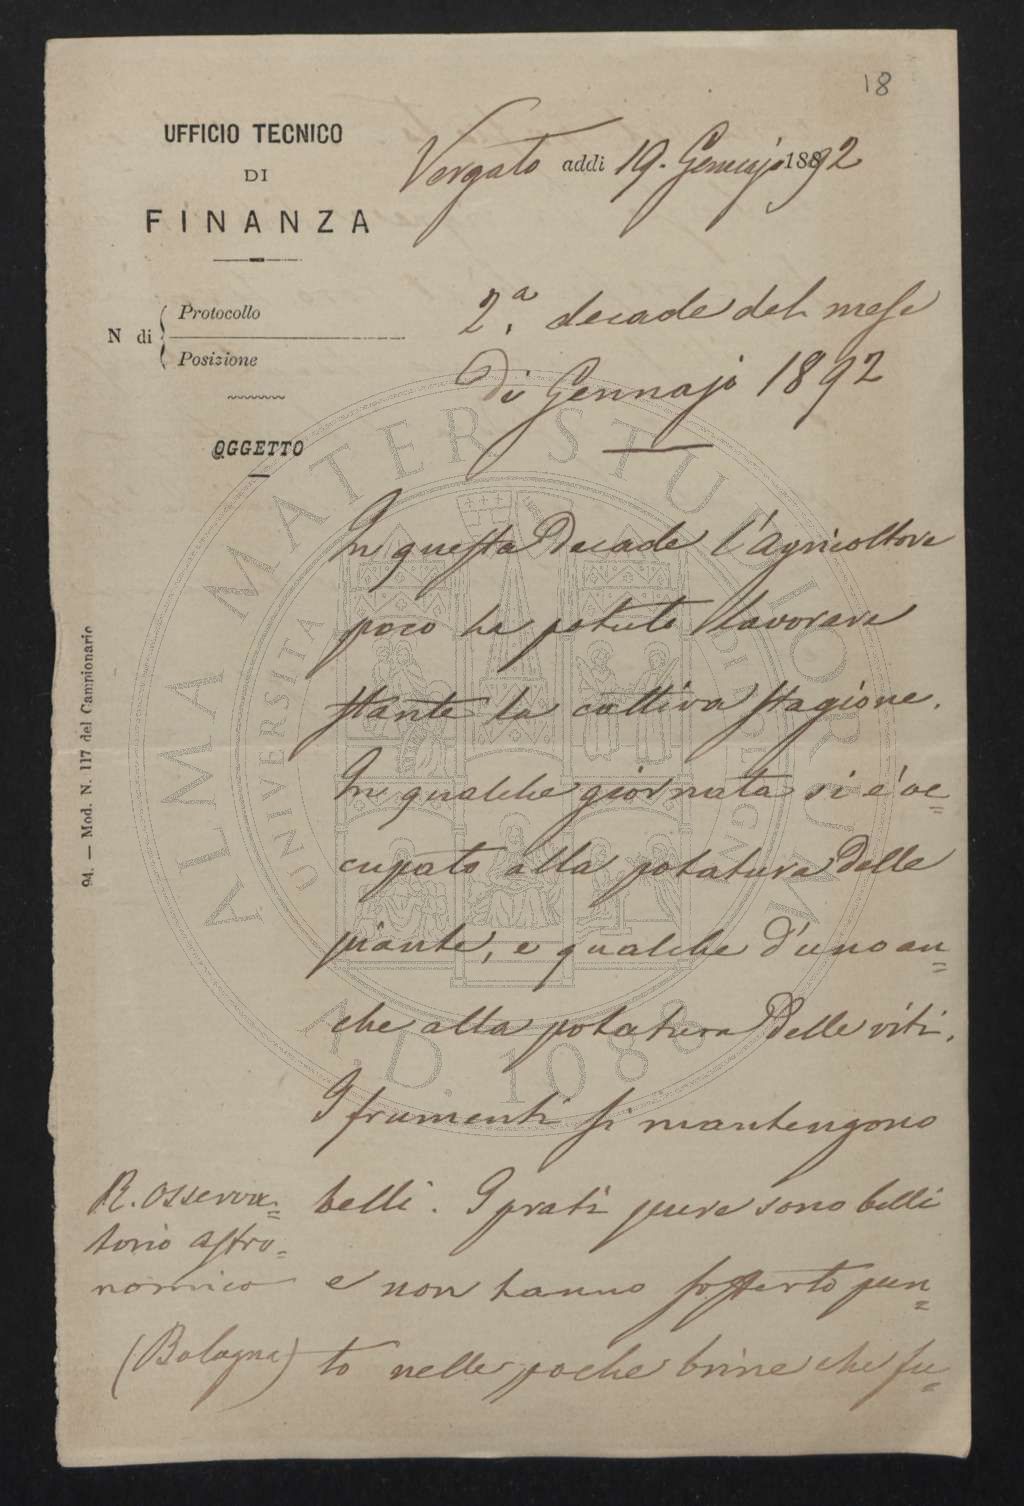 18
UFFICIO TECNICO
DI
FINANZA
Vergato addi 19. Gennajo 1892
N di Protocollo
Posizione
OGGETTO
2.a decade del mese
di Gennajo 1892
In questa Decade l'Agricoltore
poco ha potuto lavorare
stante la cattiva stagione.
In qualche giornata si è oc=
cupato alla potatura delle
piante, e qualche d'uno an=
che alla potatura delle viti.
I frumenti si mantengono
belli. I prati pure sono belli
e non hanno sofferto pun=
to nelle poche brine che fu=
R. Osserva=
torio astro=
nomico
(Bologna)
94. — Mod. N. 117 del Campionario
ALMA MATER STUDIORUM
UNIVERSITA DI BOLOGNA
A.D. 1088